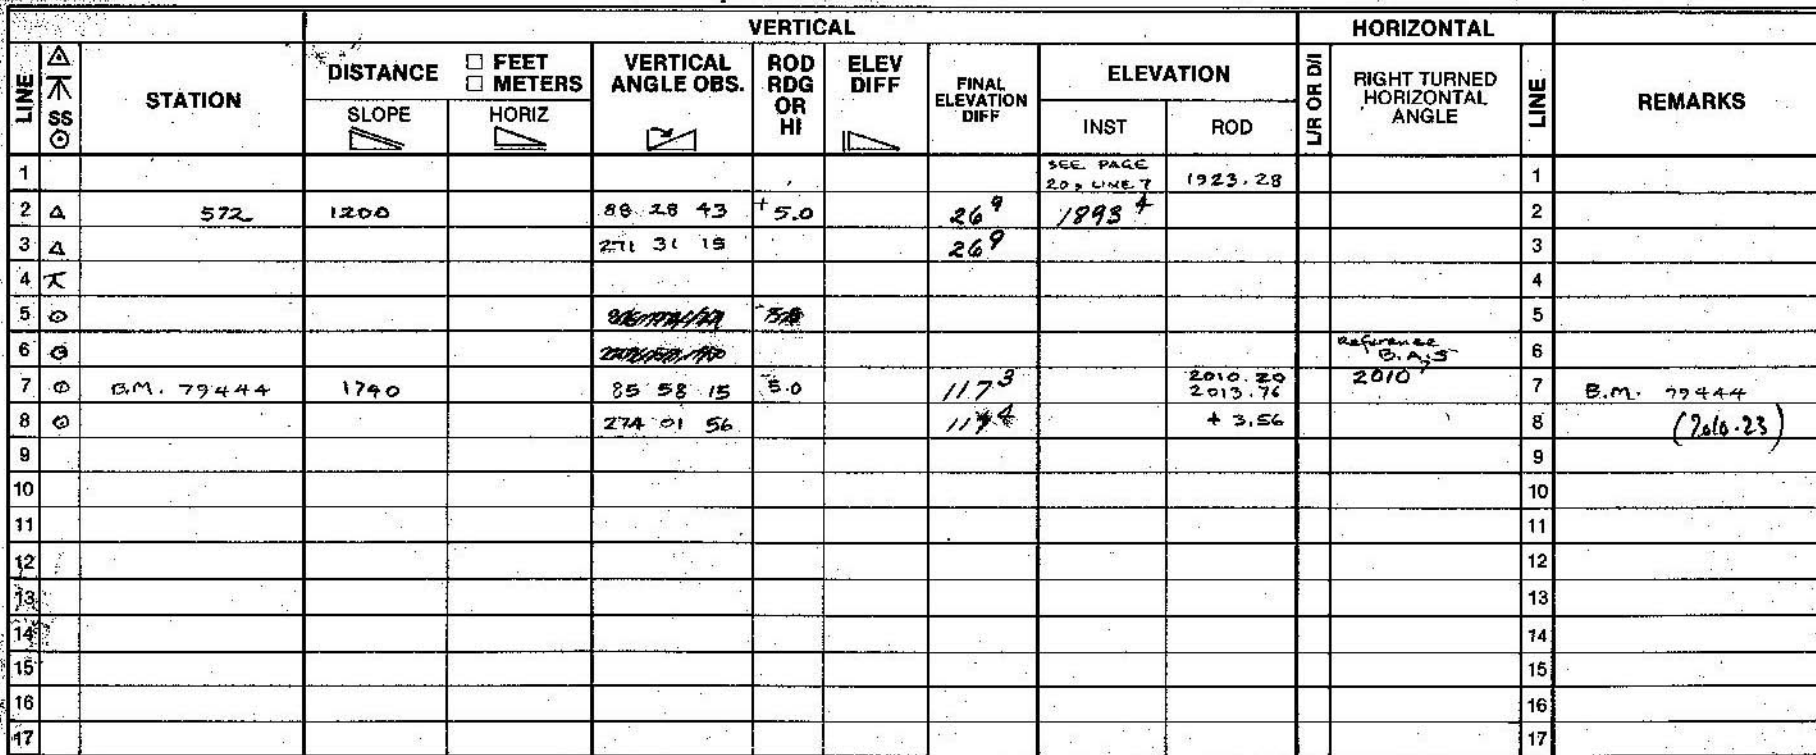 VERTICAL HORIZONTAL
LINE SS STATION DISTANCE □ FEET □ METERS SLOPE HORIZ VERTICAL ANGLE OBS. ROD RDG OR HI ELEV DIFF FINAL ELEVATION DIFF ELEVATION INST ROD L/R OR D/I RIGHT TURNED HORIZONTAL ANGLE LINE REMARKS
1 SEE PAGE 20, LINE 7 1923.28 1
2 △ 572 1200 88 28 43 +5.0 26⁹ 1893⁴ 2
3 △ 271 31 15 26⁹ 3
4 4
5 ⊙ 5
6 ⊙ Reference B.A.S 6
7 ⊙ B.M. 79444 1740 85 58 15 5.0 117³ 2010.20 2013.76 2010 7 B.M. 79444
8 ⊙ 274 01 56 + 3.56 8
9 9
10 10
11 11
12 12
13 13
14 14
15 15
16 16
17 17